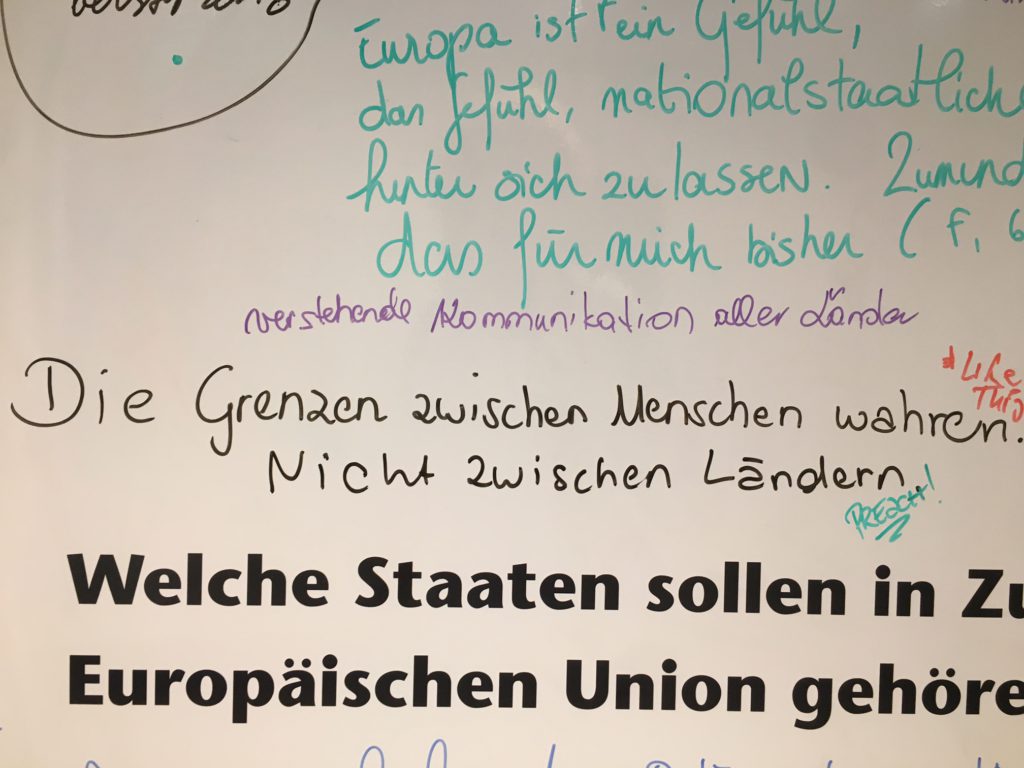 Europa ist ein Gefühl,
das Gefühl, nationalstaatliche
hinter sich zu lassen. Zumind
das für mich bisher (f, 6
verstehende Kommunikation aller Länder
Like
This
Die Grenzen zwischen Menschen wahren.
Nicht zwischen Ländern.
PREACH!
Welche Staaten sollen in Zu
Europäischen Union gehöre